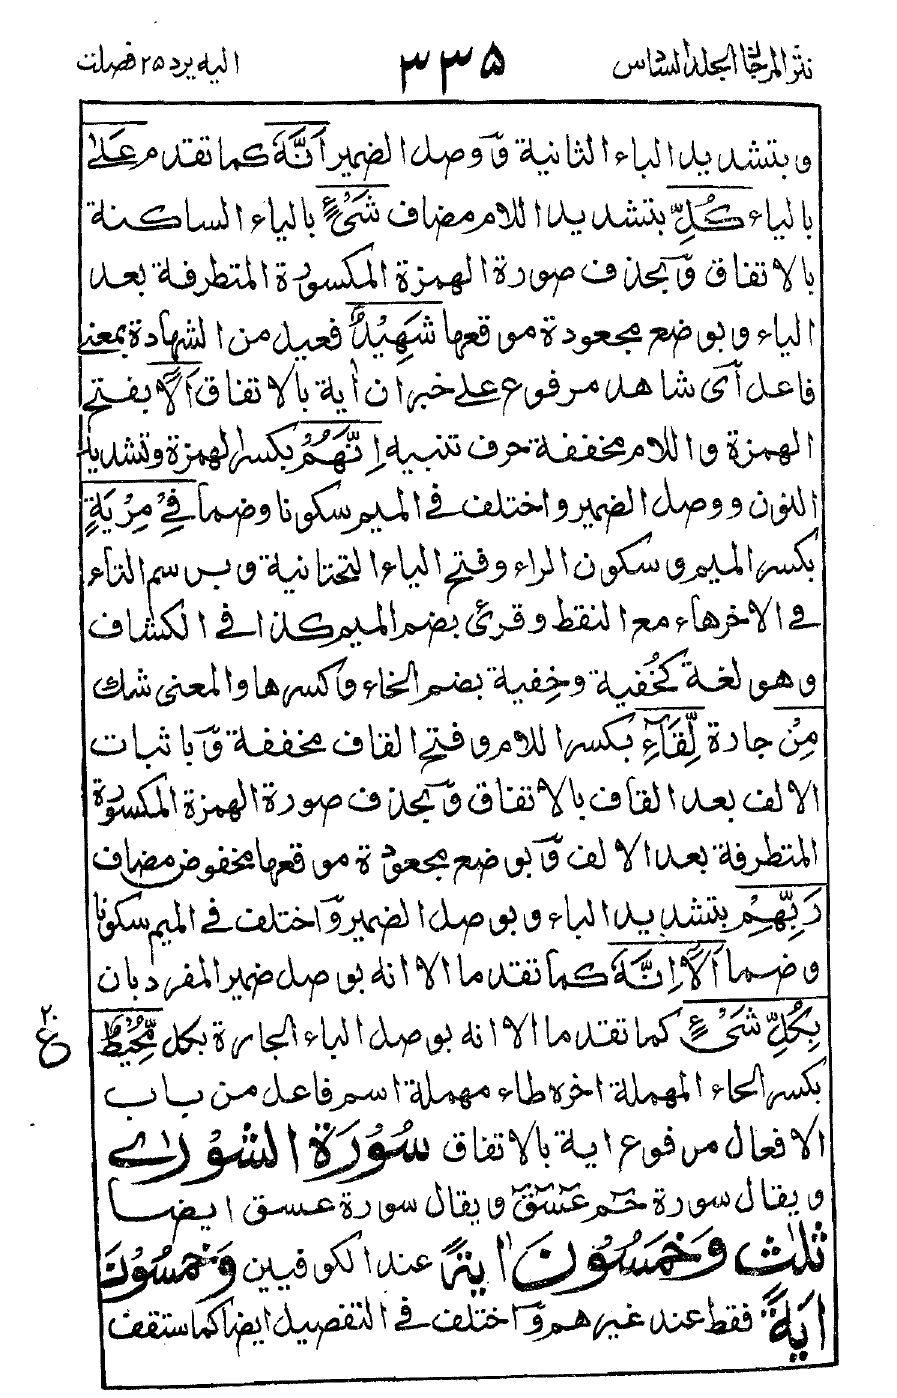 نثر المرجان المجلد السادس ٣٣٥ اليه يرد ٢٥ فصلت
وبتشديد الباء الثانية وٓ وصل الضمير اَنَّهٗ كما تقدم عَلٰى
بالياء كُلِّ بتشديد اللام مضاف شَىْءٍ بالياء الساكنة
بالاتفاق وٓ بحذف صورة الهمزة المكسورة المتطرفة بعد
الياء وبوضع مجعودة موقعها شَهِيْدٌ فعيل من الشهادة بمعنى
فاعل اى شاهد مرفوع على خبر ان اٰية بالاتفاق اَلَآ بفتح
الهمزة و اللام مخففة حرف تنبيه اِنَّهُمْ بكسر الهمزة وتشديد
النون ووصل الضمير واختلف فى الميم سكونا وضما فِىْ مِرْيَةٍ
بكسر الميم و سكون الراء وفتح الياء التحتانية و برسم التاء
فى الاخرهاء مع النقط وقرئ بضم الميم كذا فى الكشاف
وهو لغة كخُفية وخِفية بضم الخاء وٓ كسرها والمعنى شك
مِنْ جارة لِّقَآءِ بكسر اللام و فتح القاف مخففة وٓ باثبات
الالف بعد القاف بالاتفاق وٓ بحذف صورة الهمزة المكسورة
المتطرفة بعد الالف وٓ بوضع مجعودة موقعها مخفوض مضاف
رَبِّهِمْ بتشديد الباء وبوصل الضمير وٓ اختلف فى الميم سكونا
وضما اَلَآ اِنَّهٗ كما تقدما الا انه بوصل ضمير المفرد بان
بِكُلِّ شَىْءٍ كما تقدما الا انه بوصل الباء الجارة بكل مُّحِيْطٌ
٢٠
ع
بكسر الحاء المهملة اخره طاء مهملة اسم فاعل من باب
الافعال مرفوع اية بالاتفاق سُوْرَةُ الشُّوْرٰى
ويقال سورة حٓمٓ عٓسٓقٓ ويقال سورة عسق ايضا
ثلٰث وَخَمسُوْنَ اٰيةً عند الكوفيين وَخمسُوْنَ
اٰيَةً فقط عند غيرهم وٓ اختلف فى التفصيل ايضا كما ستقف